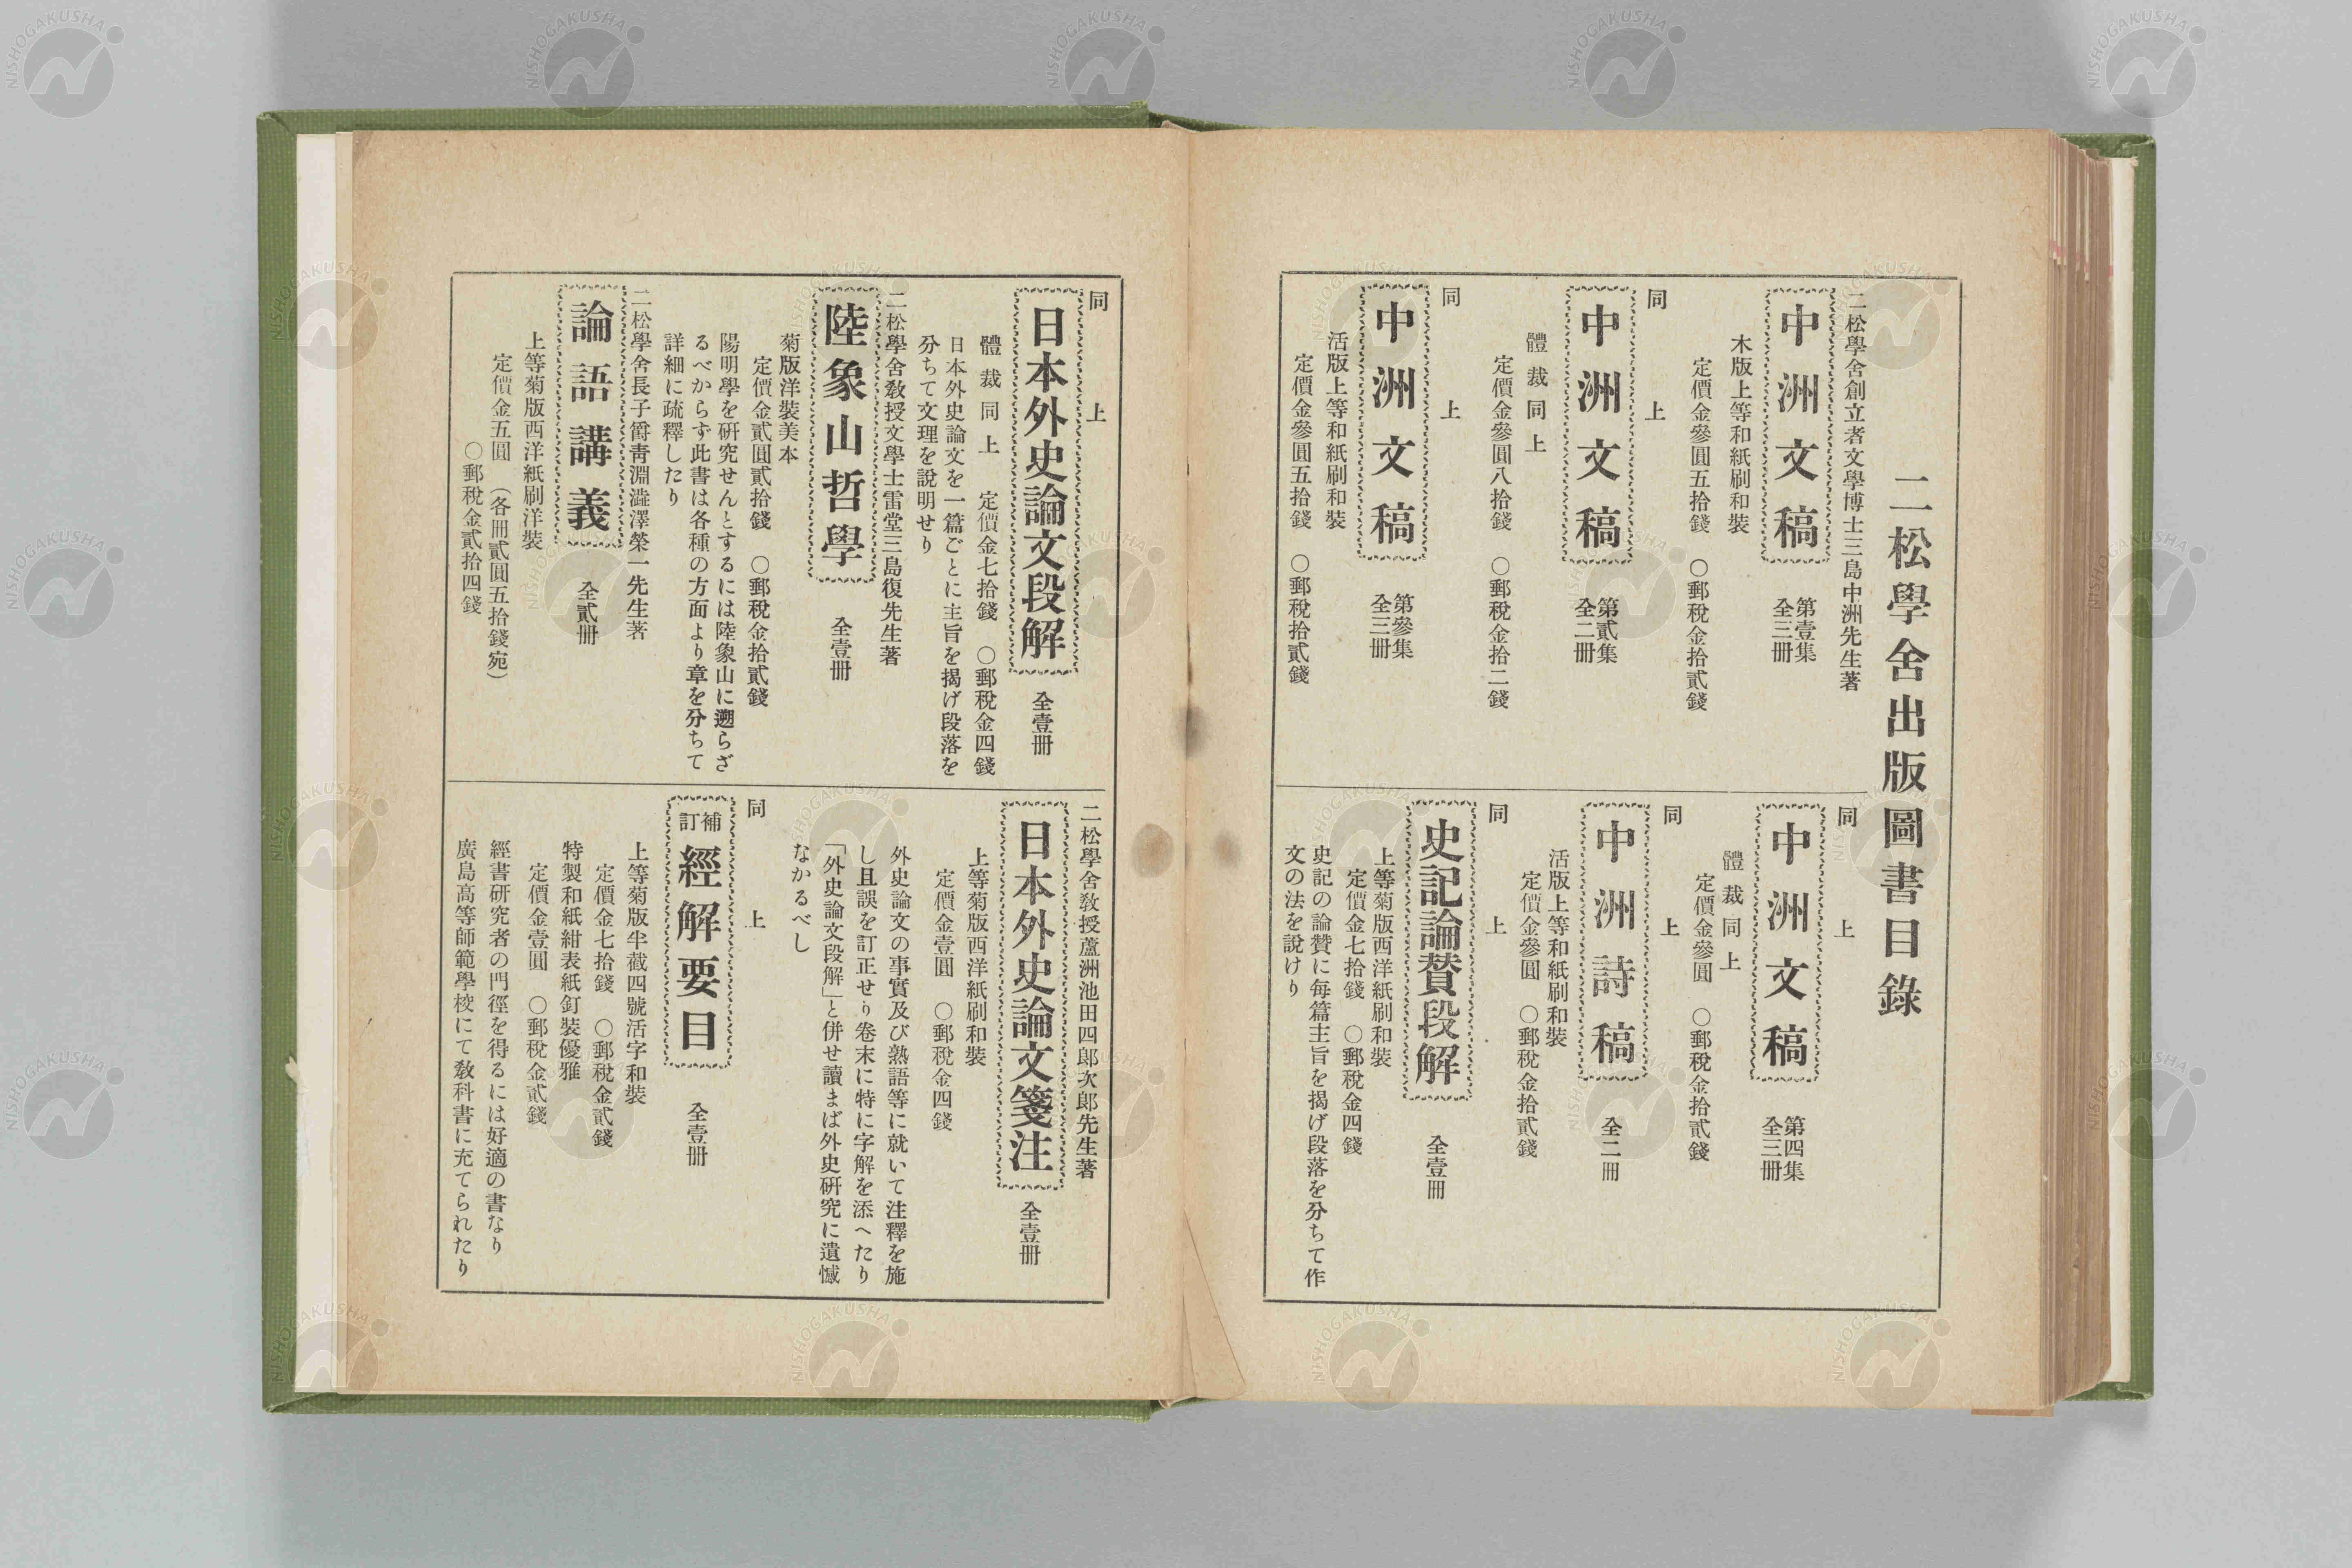 二松學舍出版圖書目錄
二松學舍創立者文學博士三島中洲先生著
中洲文稿 第壹集 全三冊
木版上等和紙刷和裝
定價金參圓五拾錢 ○郵稅金拾貳錢
同上
中洲文稿 第貳集 全二冊
體裁同上
定價金參圓八拾錢 ○郵稅金拾二錢
同上
中洲文稿 第參集 全三冊
活版上等和紙刷和裝
定價金參圓五拾錢 ○郵稅拾貳錢
同上
中洲文稿 第四集 全三冊
體裁同上
定價金參圓 ○郵稅金拾貳錢
同上
中洲詩稿 全二冊
活版上等和紙刷和裝
定價金參圓 ○郵稅金拾貳錢
同上
史記論贊段解 全壹冊
上等菊版西洋紙刷和裝
定價金七拾錢 ○郵稅金四錢
史記の論贊に每篇主旨を揭げ段落を分ちて作
文の法を說けり
同上
日本外史論文段解 全壹冊
體裁同上 定價金七拾錢 ○郵稅金四錢
日本外史論文を一篇ごとに主旨を揭げ段落を
分ちて文理を說明せり
二松學舍敎授文學士雷堂三島復先生著
陸象山哲學 全壹冊
菊版洋裝美本
定價金貳圓貳拾錢 ○郵稅金拾貳錢
陽明學を硏究せんとするには陸象山に遡らざ
るべからず此書は各種の方面より章を分ちて
詳細に疏釋したり
二松學舍長子爵靑淵澁澤榮一先生著
論語講義 全貳冊
上等菊版西洋紙刷洋裝
定價金五圓 (各冊貳圓五拾錢宛)
○郵稅金貳拾四錢
二松學舍敎授蘆洲池田四郎次郎先生著
日本外史論文箋注 全壹冊
上等菊版西洋紙刷和裝
定價金壹圓 ○郵稅金四錢
外史論文の事實及び熟語等に就いて注釋を施
し且誤を訂正せり卷末に特に字解を添へたり
「外史論文段解」と併せ讀まば外史硏究に遺憾
なかるべし
同上
補訂 經解要目 全壹冊
上等菊版半截四號活字和裝
定價金七拾錢 ○郵稅金貳錢
特製和紙紺表紙釘裝優雅
定價金壹圓 ○郵稅金貳錢
經書硏究者の門徑を得るには好適の書なり
廣島高等師範學校にて敎科書に充てられたり
NISHOGAKUSHA